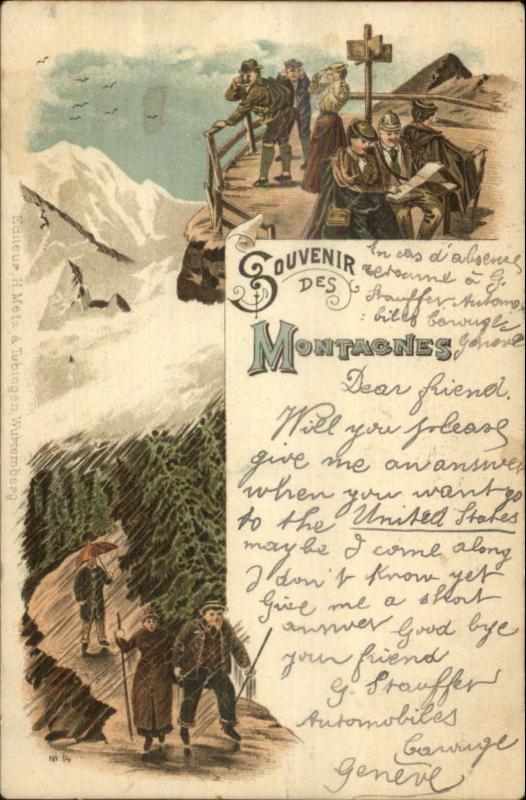 En cas d'absence
retourné à G.
Stauffer-Automo
: biles Carouge
Genève
SOUVENIR
DES
MONTAGNES
Dear friend.
Will you please
give me an answer
when you want go
to the United States
maybe I come along
I don't know yet
Give me a short
answer Good bye
your friend
G. Stauffer
Automobiles
Carouge
Genève
Editeur H. Metz, à Tubingen, Wurtemberg
No 14